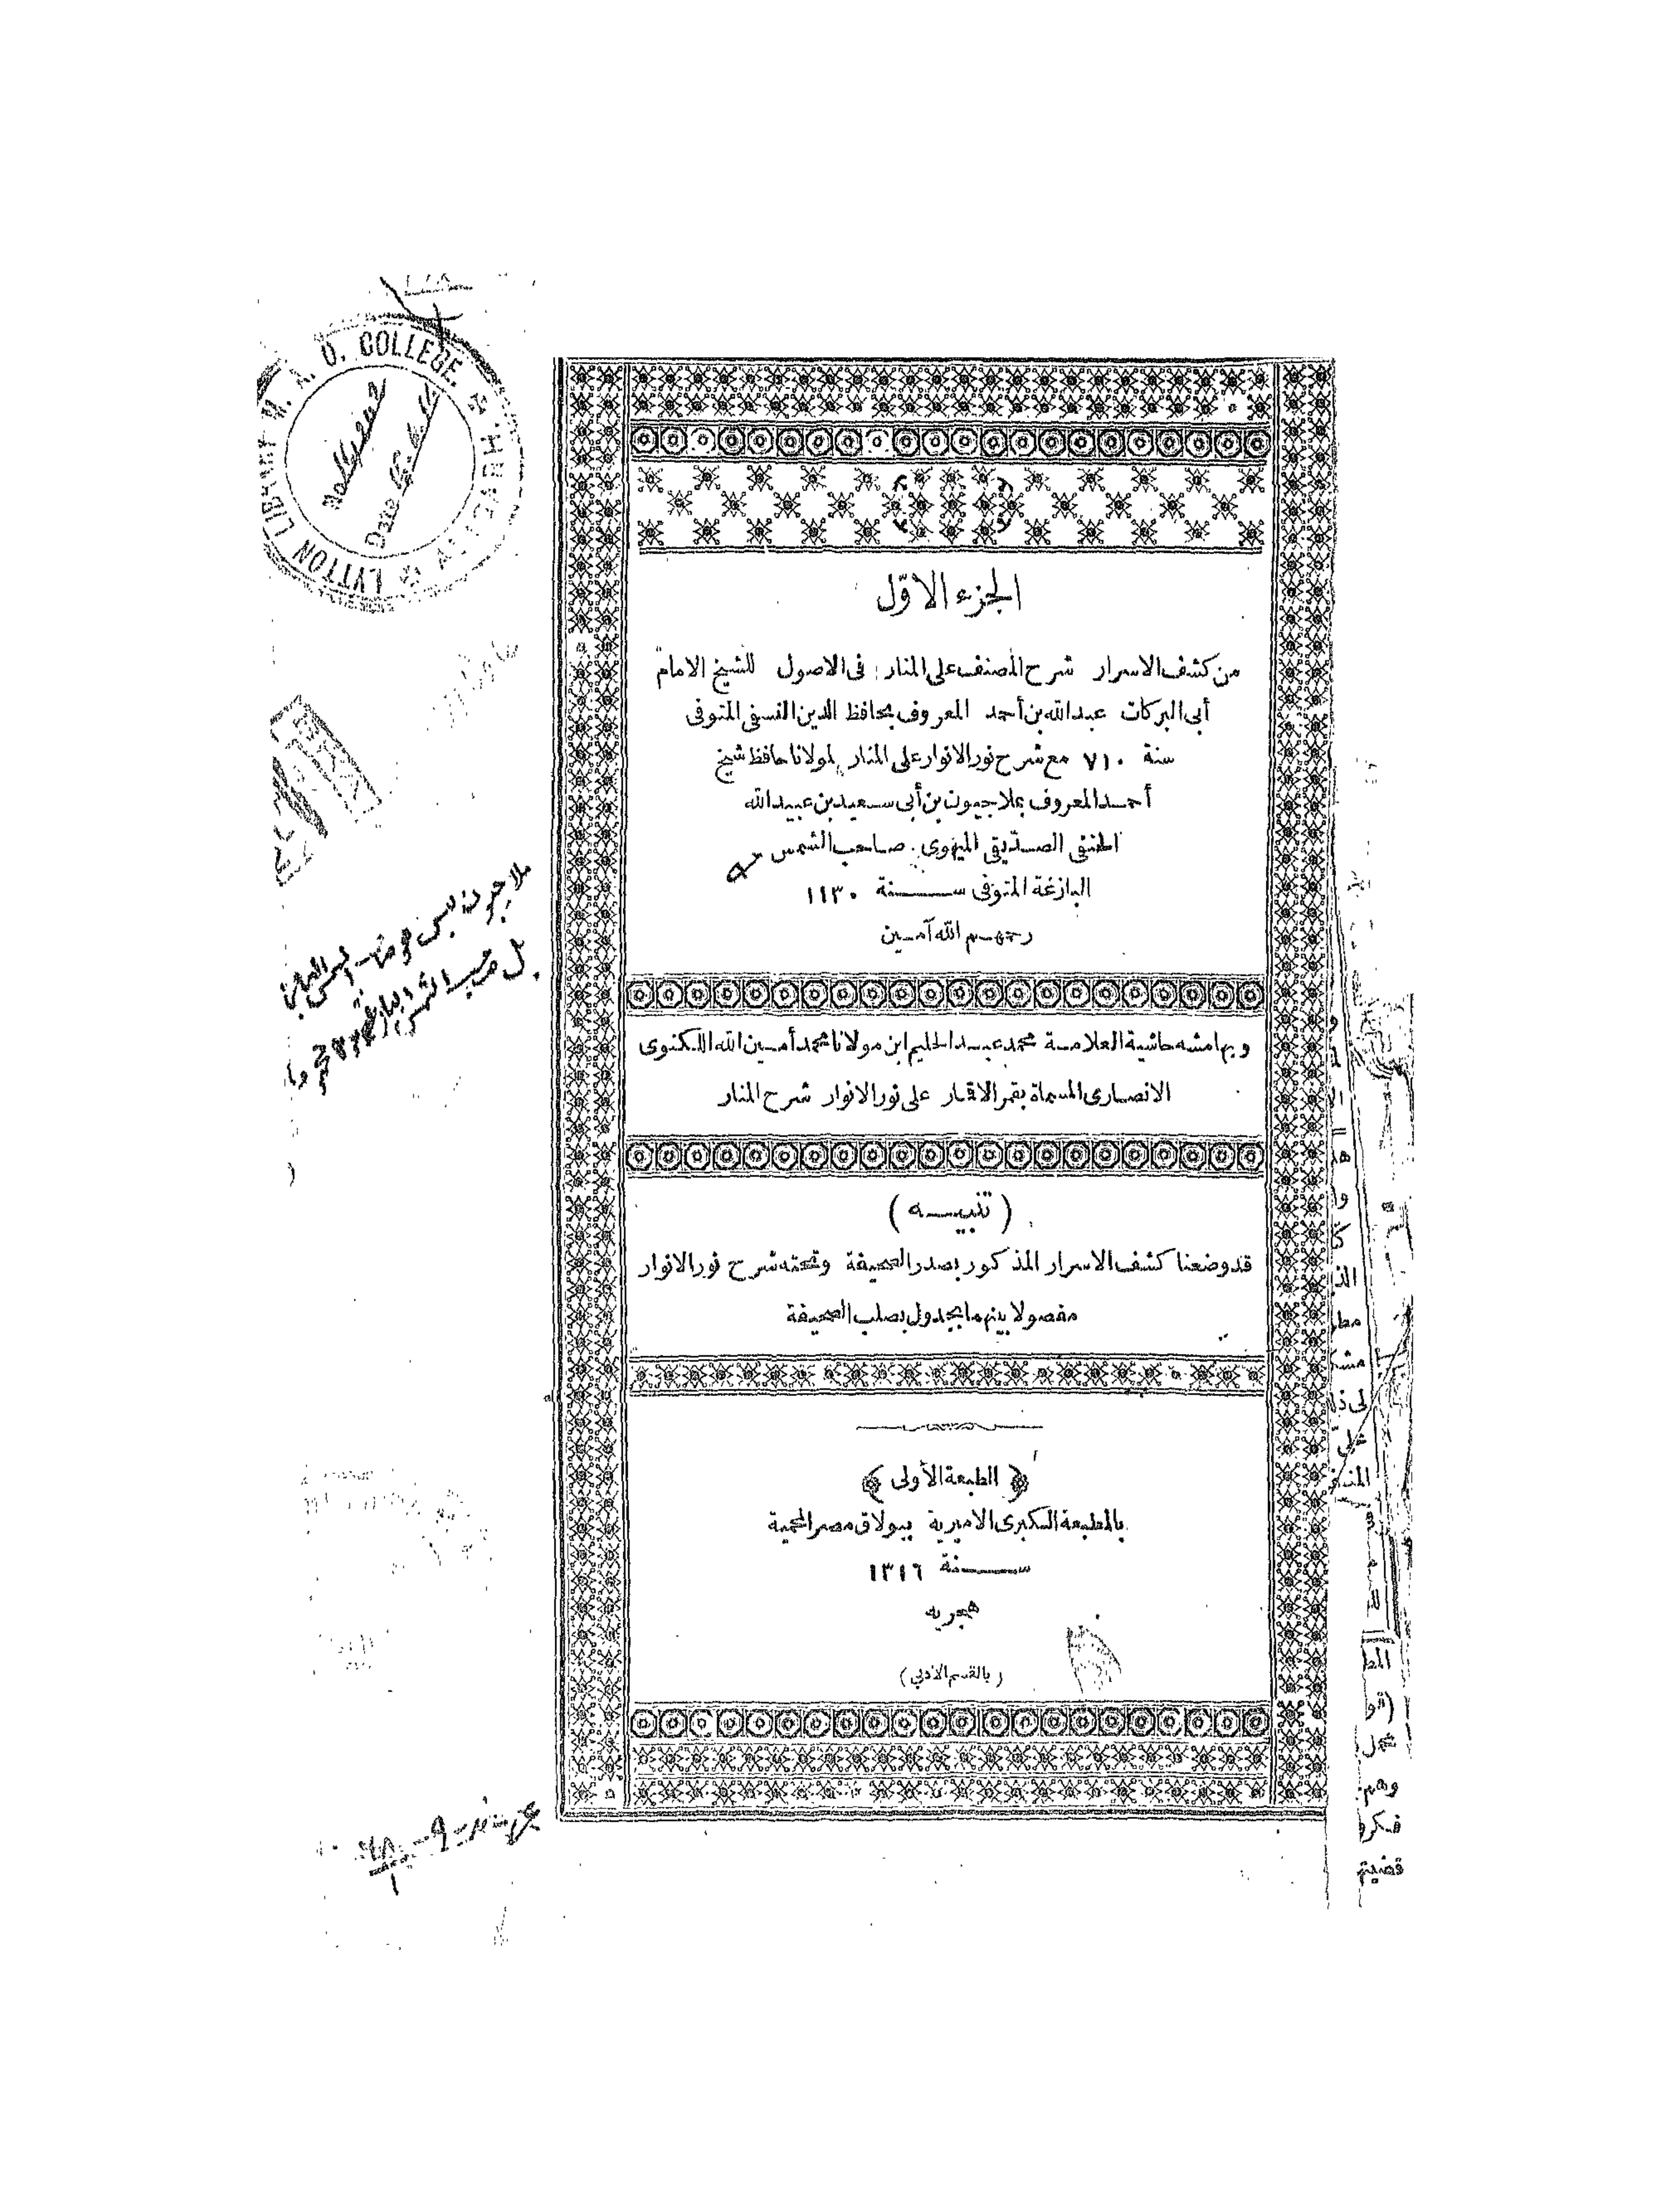 الجزء الاوّل
من كشف الاسرار شرح المصنف على المنار فى الاصول للشيخ الامام
أبى البركات عبدالله بن أحمد المعروف بحافظ الدين النسفى المتوفى
سنة ٧١٠ مع شرح نور الانوار على المنار لمولانا حافظ شيخ
أحمد المعروف بملاجيون بن أبى سعيد بن عبيدالله
الحنفى الصدّيقى الميهوى صاحب الشمس
البازغة المتوفى سنة ١١٣٠
رحمهم الله آمين
وبهامشه حاشية العلامة محمد عبد الحليم ابن مولانا محمد أمين الله اللكنوى
الانصارى المسماة بقمر الاقمار على نور الانوار شرح المنار
(تنبيه)
قد وضعنا كشف الاسرار المذكور بصدر الصحيفة وتحته شرح نور الانوار
مفصولا بينهما بجدول بصلب الصحيفة
﴿ الطبعة الأولى ﴾
بالمطبعة الكبرى الاميرية ببولاق مصر المحمية
سنة ١٣١٦
هجريه
(بالقسم الادبى)
LYTTON LIBRARY M. A. O. COLLEGE. ALIGARH.
Date
ملا جيون
صاحب الشمس البازغة
و
ا
الا
هذ
وا
الذ
مطا
مشك
لى ذا
على
المنذ
المط
(قو
محمل
وهم
فكرة
قضيتم